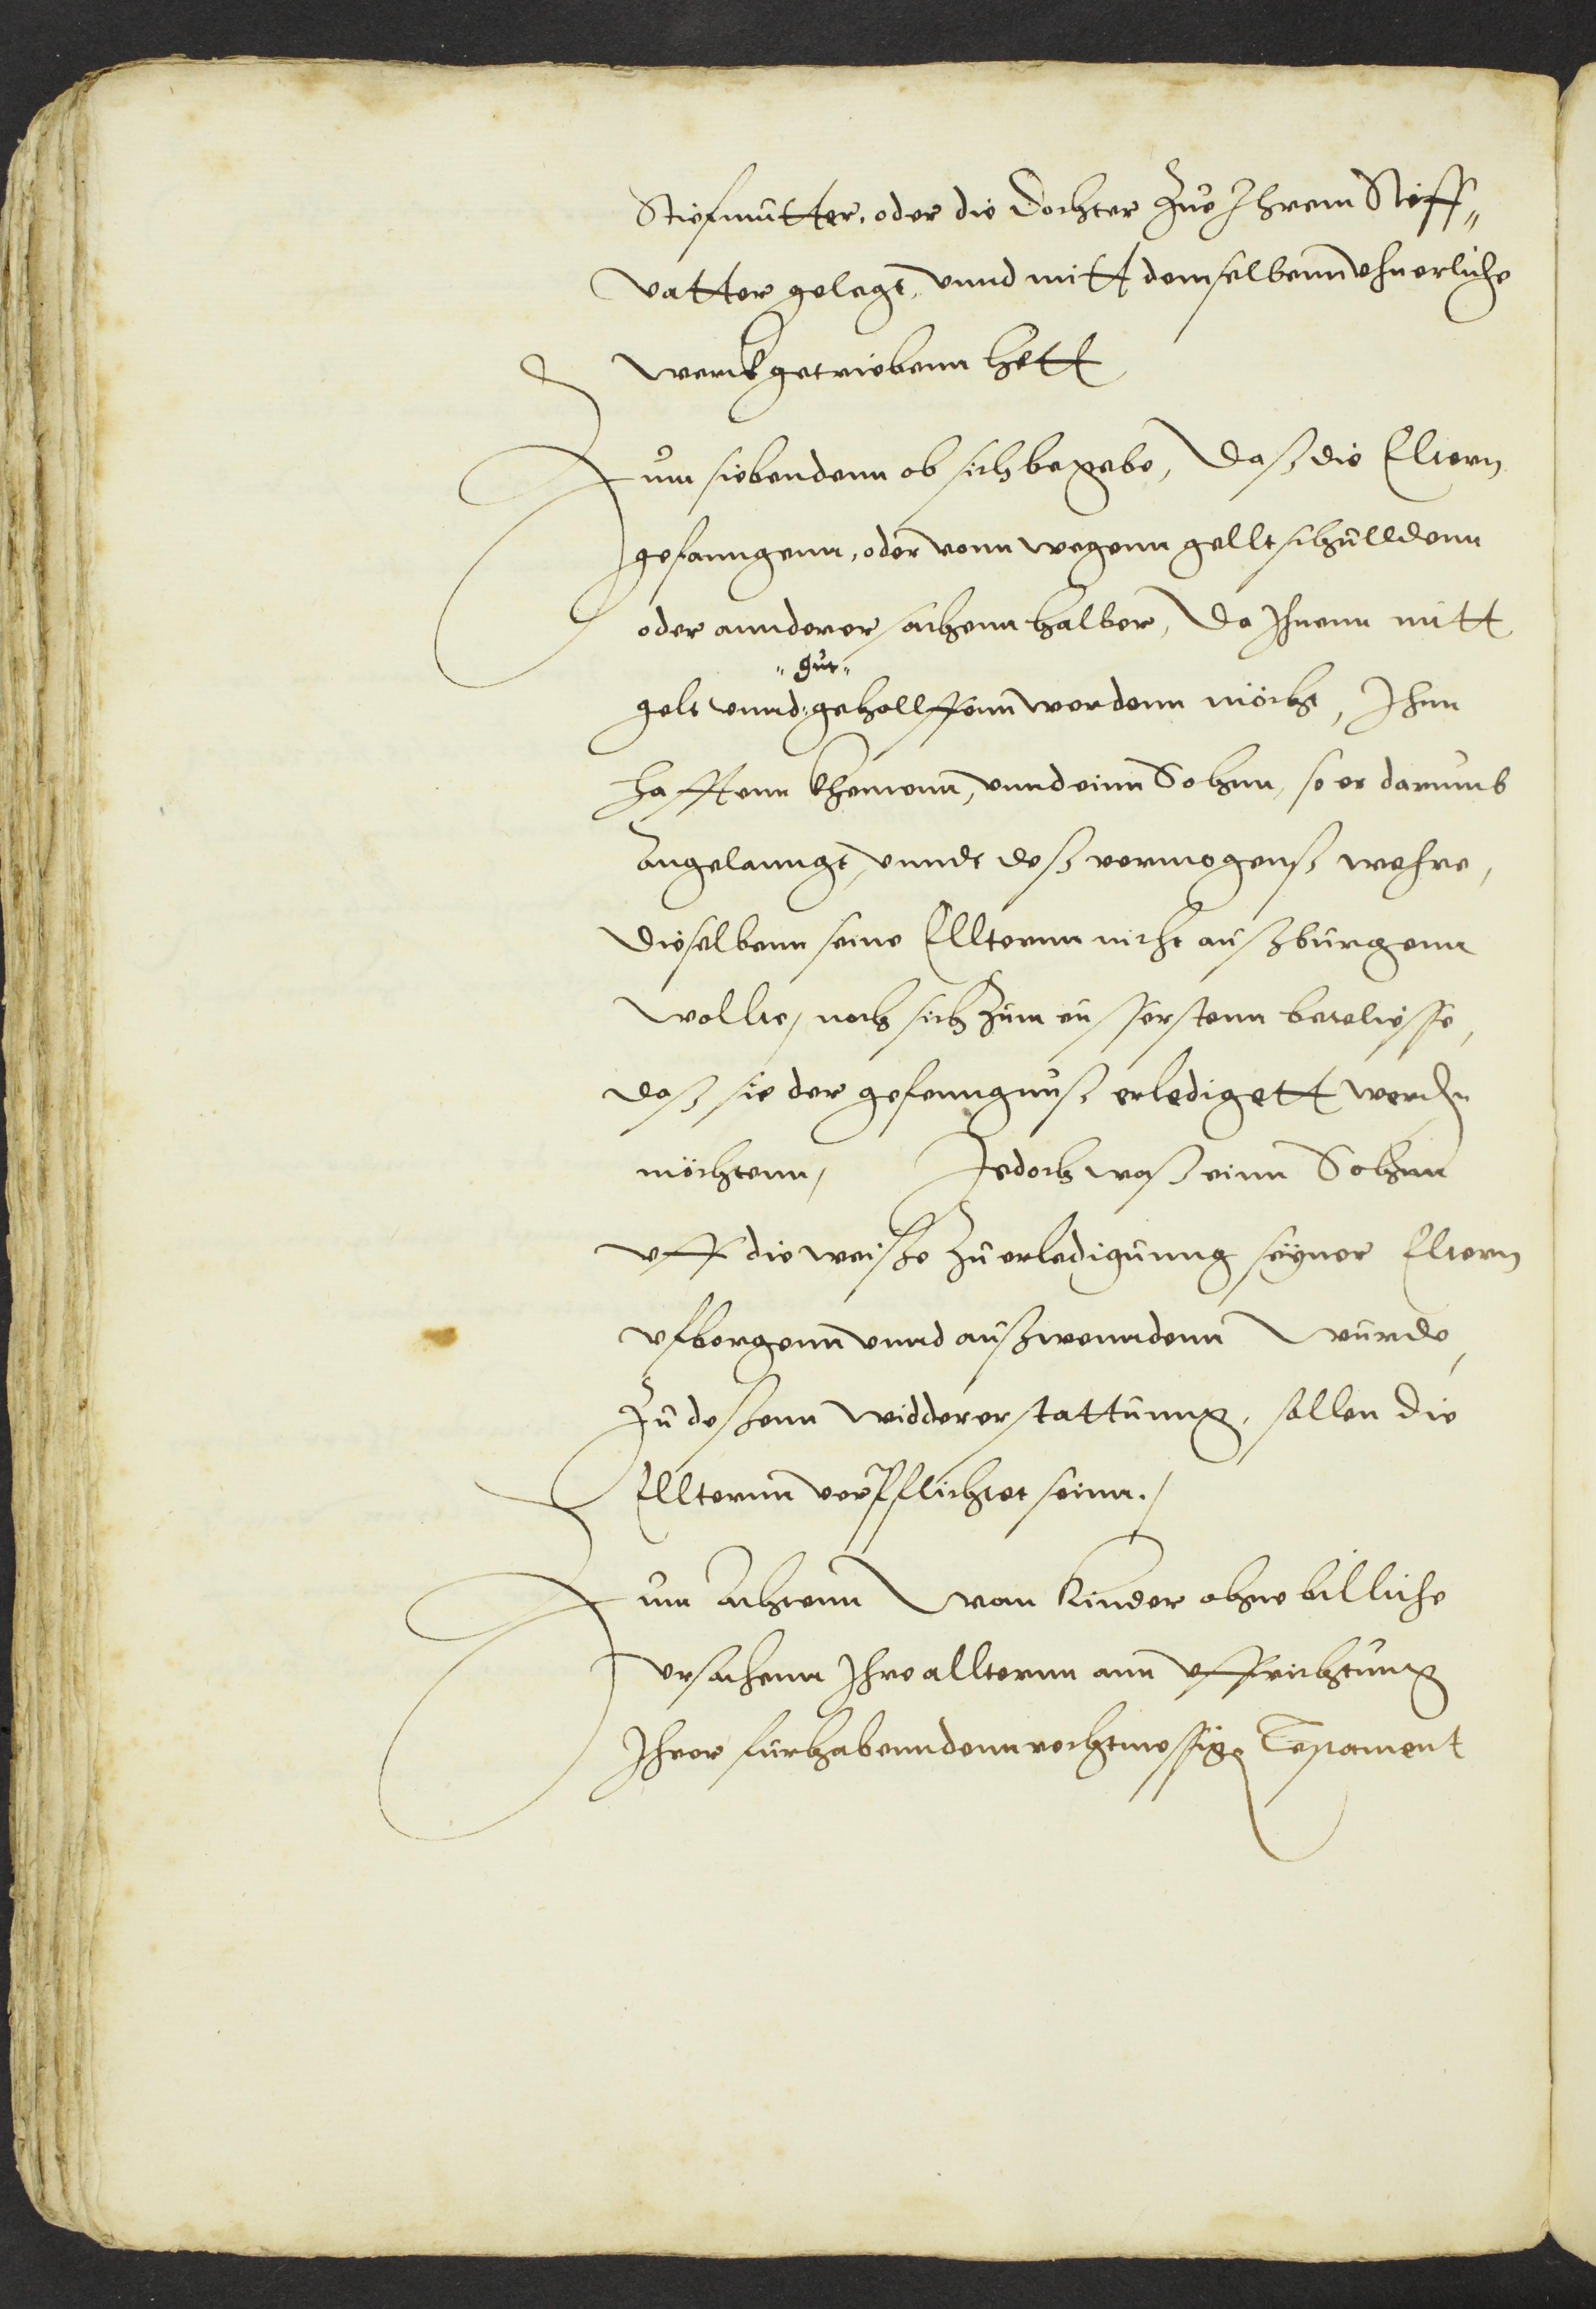 Stiefmutter, oder die Dochter Zue Ihrem Stieff„
vatter gelegt, vnnd mitt demselbenn vhnerliche
werck getriebenn hett
Zum siebendenn ob sich begebe, Daß die Eltern
gefanngenn, oder vonn wegenn gelltschulldenn
oder annderer sachenn halber, Da Ihnenn mitt
„gut„
gelt vnnd: geholffenn werdenn möcht, Inn
hafftenn khemenn, vnnd einn Sohnn, so er darumb
Angelanngt, vnndt deß vermogenß wehre,
Dieselbenn seine Elltternn nicht außburgenn
wollte, noch sich Zum eusserstenn
daß sie der gefenngnuß erledigett werden
möchtenn, Jedoch waß einn Sohnn
vff die weiße Zu erledigunng seyner Eltern
vfborgenn vnnd außwenndenn wurde,
Zu deßenn widdererstattunng, sollen die
Ellternn verpflichtet seinn.
Zum Achtenn Wan Kinder ohne billiche
vrsachenn Ihre alltternn ann vffrichtung
Ihrer furhabenndenn rechtmessige Testament